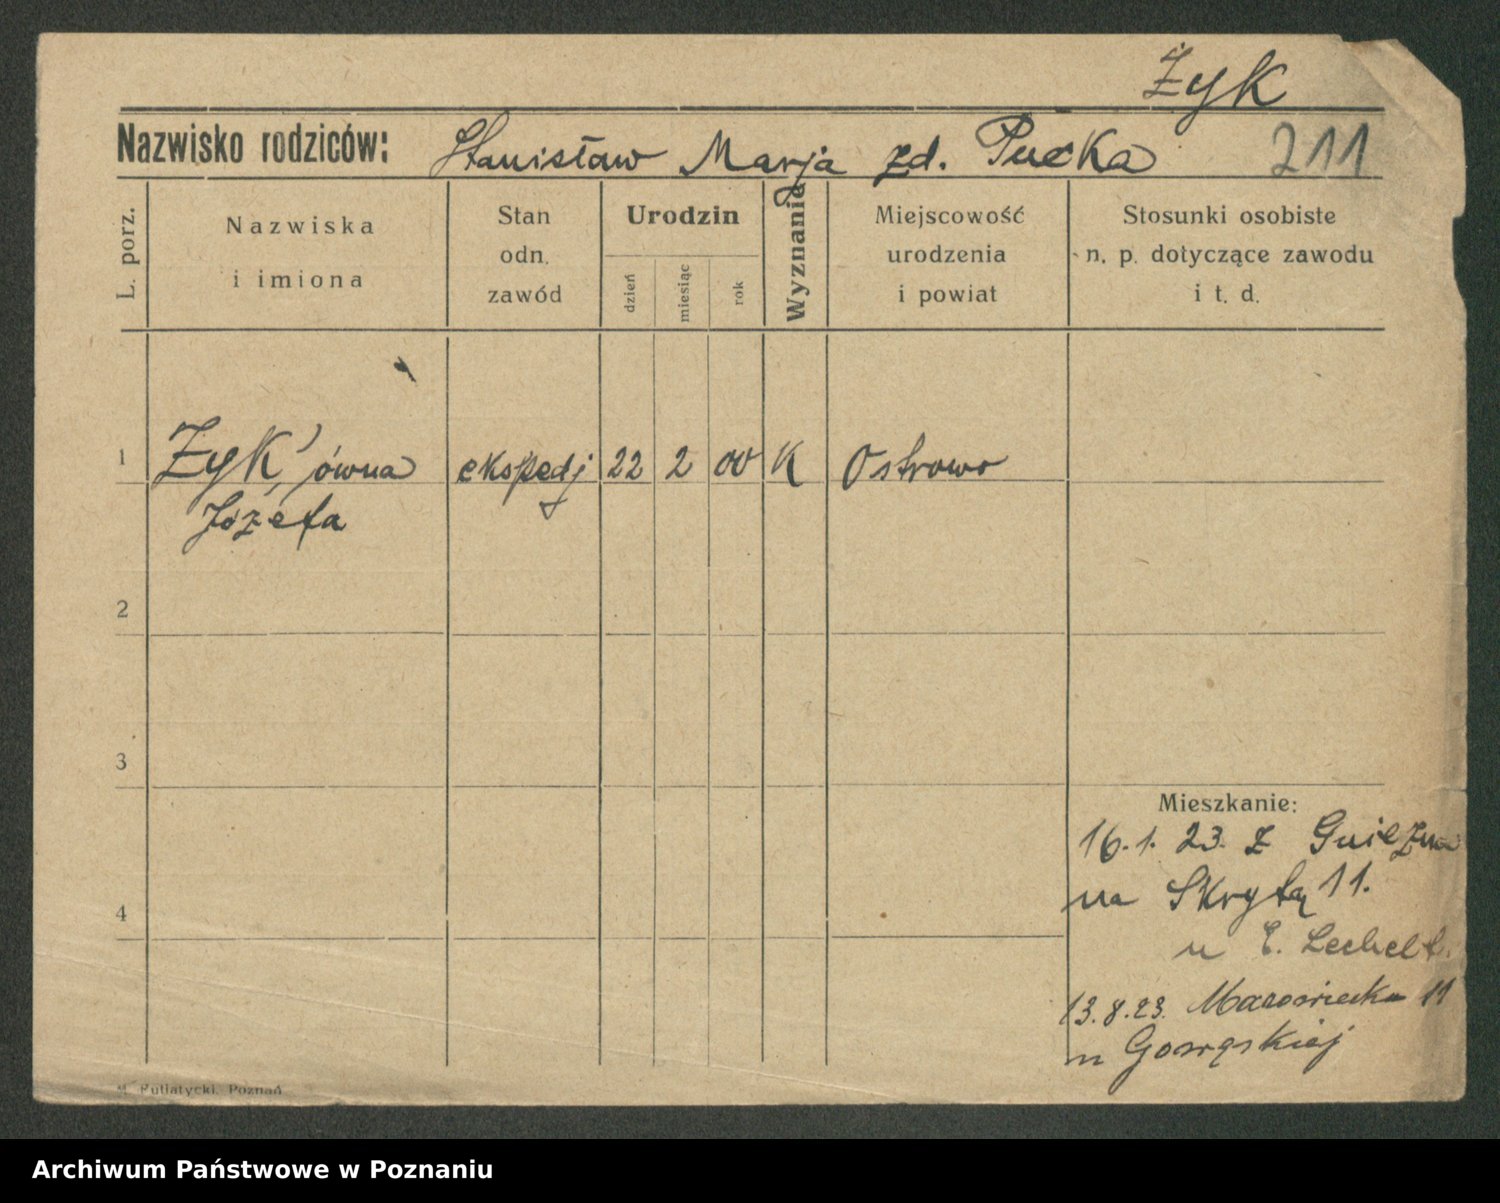 Żyk
Nazwisko rodziców: Stanisław Marja zd. Pucka 211
L. porz.
Nazwiska
i imiona
Stan
odn.
zawód
Urodzin
dzień
miesiąc
rok
Wyznanie
Miejscowość
urodzenia
i powiat
Stosunki osobiste
n. p. dotyczące zawodu
i t. d.
1 Żyk, ówna ekspedj 22 2 00 K Ostrowo
Józefa
2
3
Mieszkanie:
16.1.23. z Gniezna
na Skrytą 11.
4
u E. Lechelt.
13.8.23. Mazowiecka 11
u
M. Putiatycki, Poznań
Archiwum Państwowe w Poznaniu